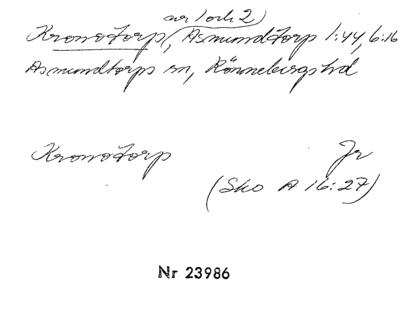 nr 1 och 2)
Kronotorp (, Asmundtorp 1:44, 6:16
Asmundtorps sn, Rönnebergs hd
Kronotorp Jr
(Sko A 16:27)
Nr 23986